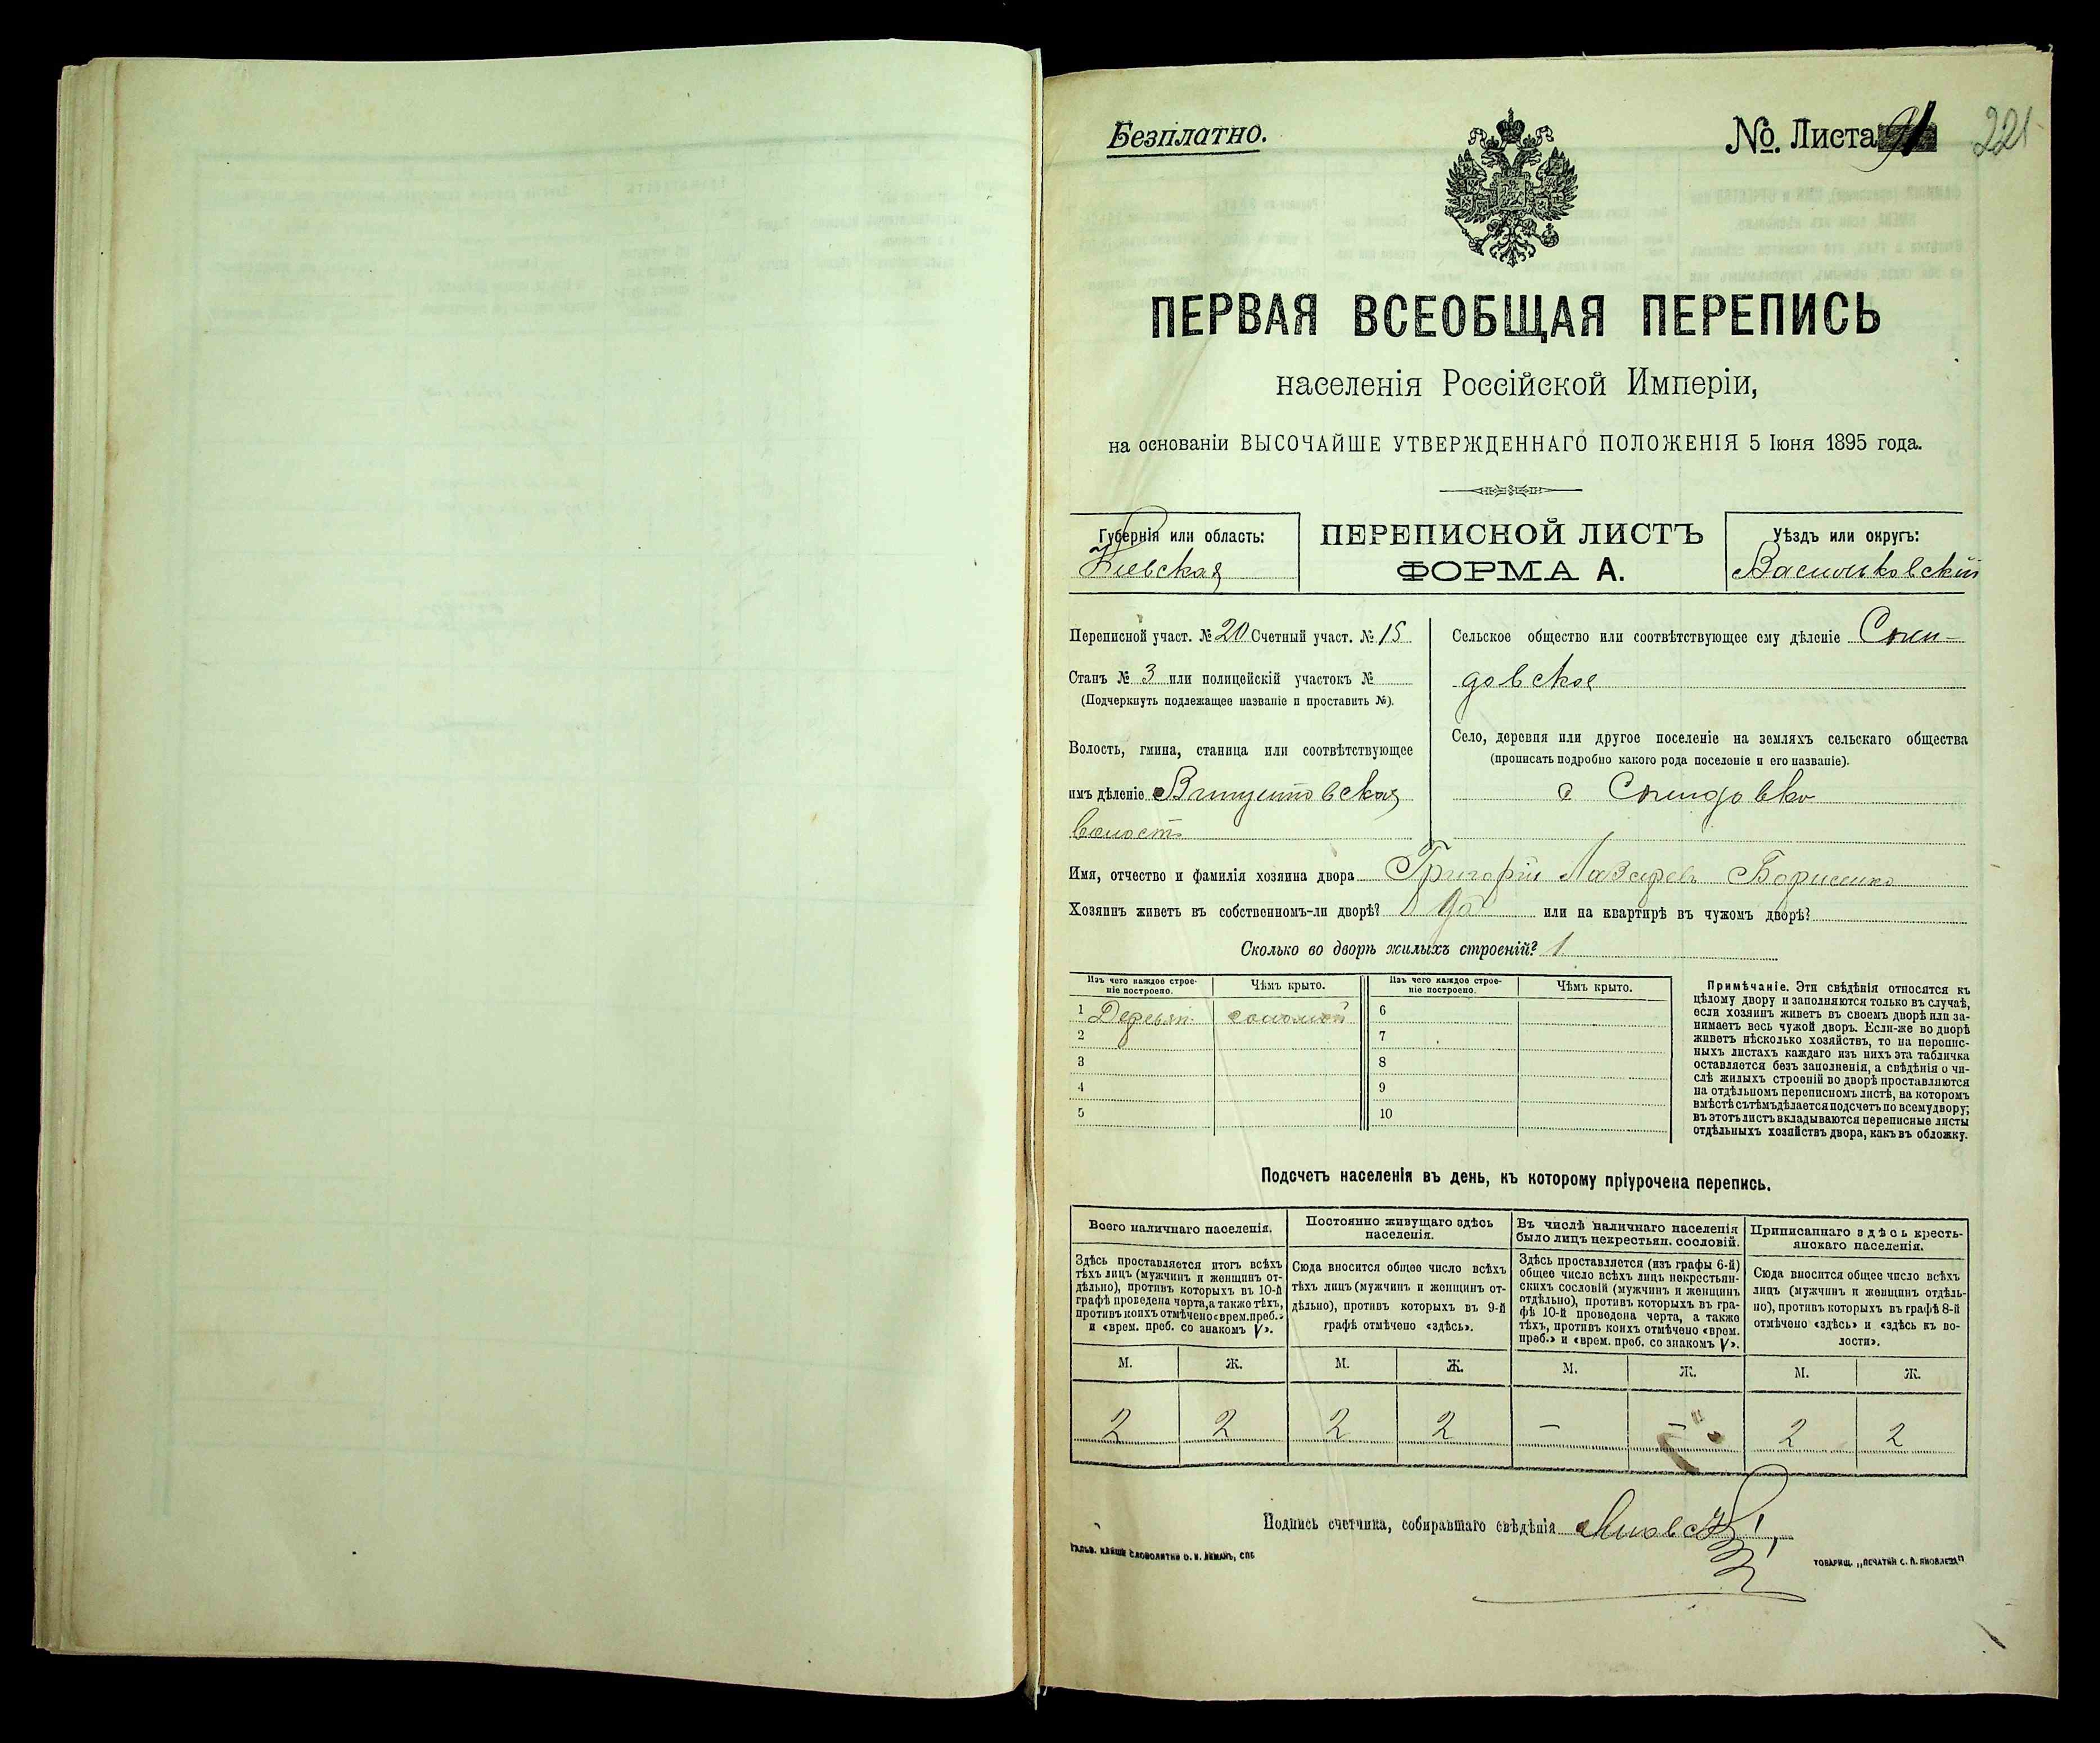 Безплатно.
No. Листа 91
221
ПЕРВАЯ ВСЕОБЩАЯ ПЕРЕПИСЬ
населенія Россійской Имперіи,
на основаніи ВЫСОЧАЙШЕ УТВЕРЖДЕННАГО ПОЛОЖЕНІЯ 5 Іюня 1895 года.
Губернія или область:
Кіевская
ПЕРЕПИСНОЙ ЛИСТЪ
ФОРМА А.
Уѣздъ или округъ:
Васильковскій
Переписной участ. № 20 Счетный участ. № 15
Станъ № 3 или полицейскій участокъ №
(Подчеркнуть подлежащее названіе и проставить №).
Волость, гмина, станица или соотвѣтствующее
имъ дѣленіе
волость
Сельское общество или соотвѣтствующее ему дѣленіе
довское
Село, деревня или другое поселеніе на земляхъ сельскаго общества
(прописать подробно какого рода поселеніе и его названіе).
Имя, отчество и фамилія хозяина двора Григорій Лазаревъ
Хозяинъ живетъ въ собственномъ-ли дворѣ? Да или на квартирѣ въ чужомъ дворѣ?
Сколько во дворѣ жилыхъ строеній? 1
Изъ чего каждое строе-
ніе построено.
Чѣмъ крыто.
Изъ чего каждое строе-
ніе построено.
Чѣмъ крыто.
1 Деревян. соломой 6
2 7
3 8
4 9
5 10
Примѣчаніе. Эти свѣдѣнія относятся къ
цѣлому двору и заполняются только въ случаѣ,
если хозяинъ живетъ въ своемъ дворѣ или за-
нимаетъ весь чужой дворъ. Если-же во дворѣ
живетъ нѣсколько хозяйствъ, то на перепис-
ныхъ листахъ каждаго изъ нихъ эта табличка
оставляется безъ заполненія, а свѣдѣнія о чи-
слѣ жилыхъ строеній во дворѣ проставляются
на отдѣльномъ переписномъ листѣ, на которомъ
вмѣстѣ съ тѣмъ дѣлается подсчетъ по всему двору;
въ этотъ листъ вкладываются переписные листы
отдѣльныхъ хозяйствъ двора, какъ въ обложку.
Подсчетъ населенія въ день, къ которому пріурочена перепись.
Всего наличнаго населенія.
Здѣсь проставляется итогъ всѣхъ
тѣхъ лицъ (мужчинъ и женщинъ от-
дѣльно), противъ которыхъ въ 10-й
графѣ проведена черта, а также тѣхъ,
противъ коихъ отмѣчено «врем. преб.»
и «врем. преб. со знакомъ V».
Постоянно живущаго здѣсь
населенія.
Сюда вносится общее число всѣхъ
тѣхъ лицъ (мужчинъ и женщинъ от-
дѣльно), противъ которыхъ въ 9-й
графѣ отмѣчено «здѣсь».
Въ числѣ наличнаго населенія
было лицъ некрестьян. сословій.
Здѣсь проставляется (изъ графы 6-й)
общее число всѣхъ лицъ некрестьян-
скихъ сословій (мужчинъ и женщинъ
отдѣльно), противъ которыхъ въ гра-
фѣ 10-й проведена черта, а также
тѣхъ, противъ коихъ отмѣчено «врем.
преб.» и «врем. преб. со знакомъ V».
Приписаннаго здѣсь кресть-
янскаго населенія.
Сюда вносится общее число всѣхъ
лицъ (мужчинъ и женщинъ отдѣль-
но), противъ которыхъ въ графѣ 8-й
отмѣчено «здѣсь» и «здѣсь къ во-
лости».
М. Ж. М. Ж. М. Ж. М. Ж.
2 2 2 2 — — 2 2
Подпись счетчика, собиравшаго свѣдѣнія
ТОВАРИЩ. „ПЕЧАТНИ С. П. ЯКОВЛЕВА"